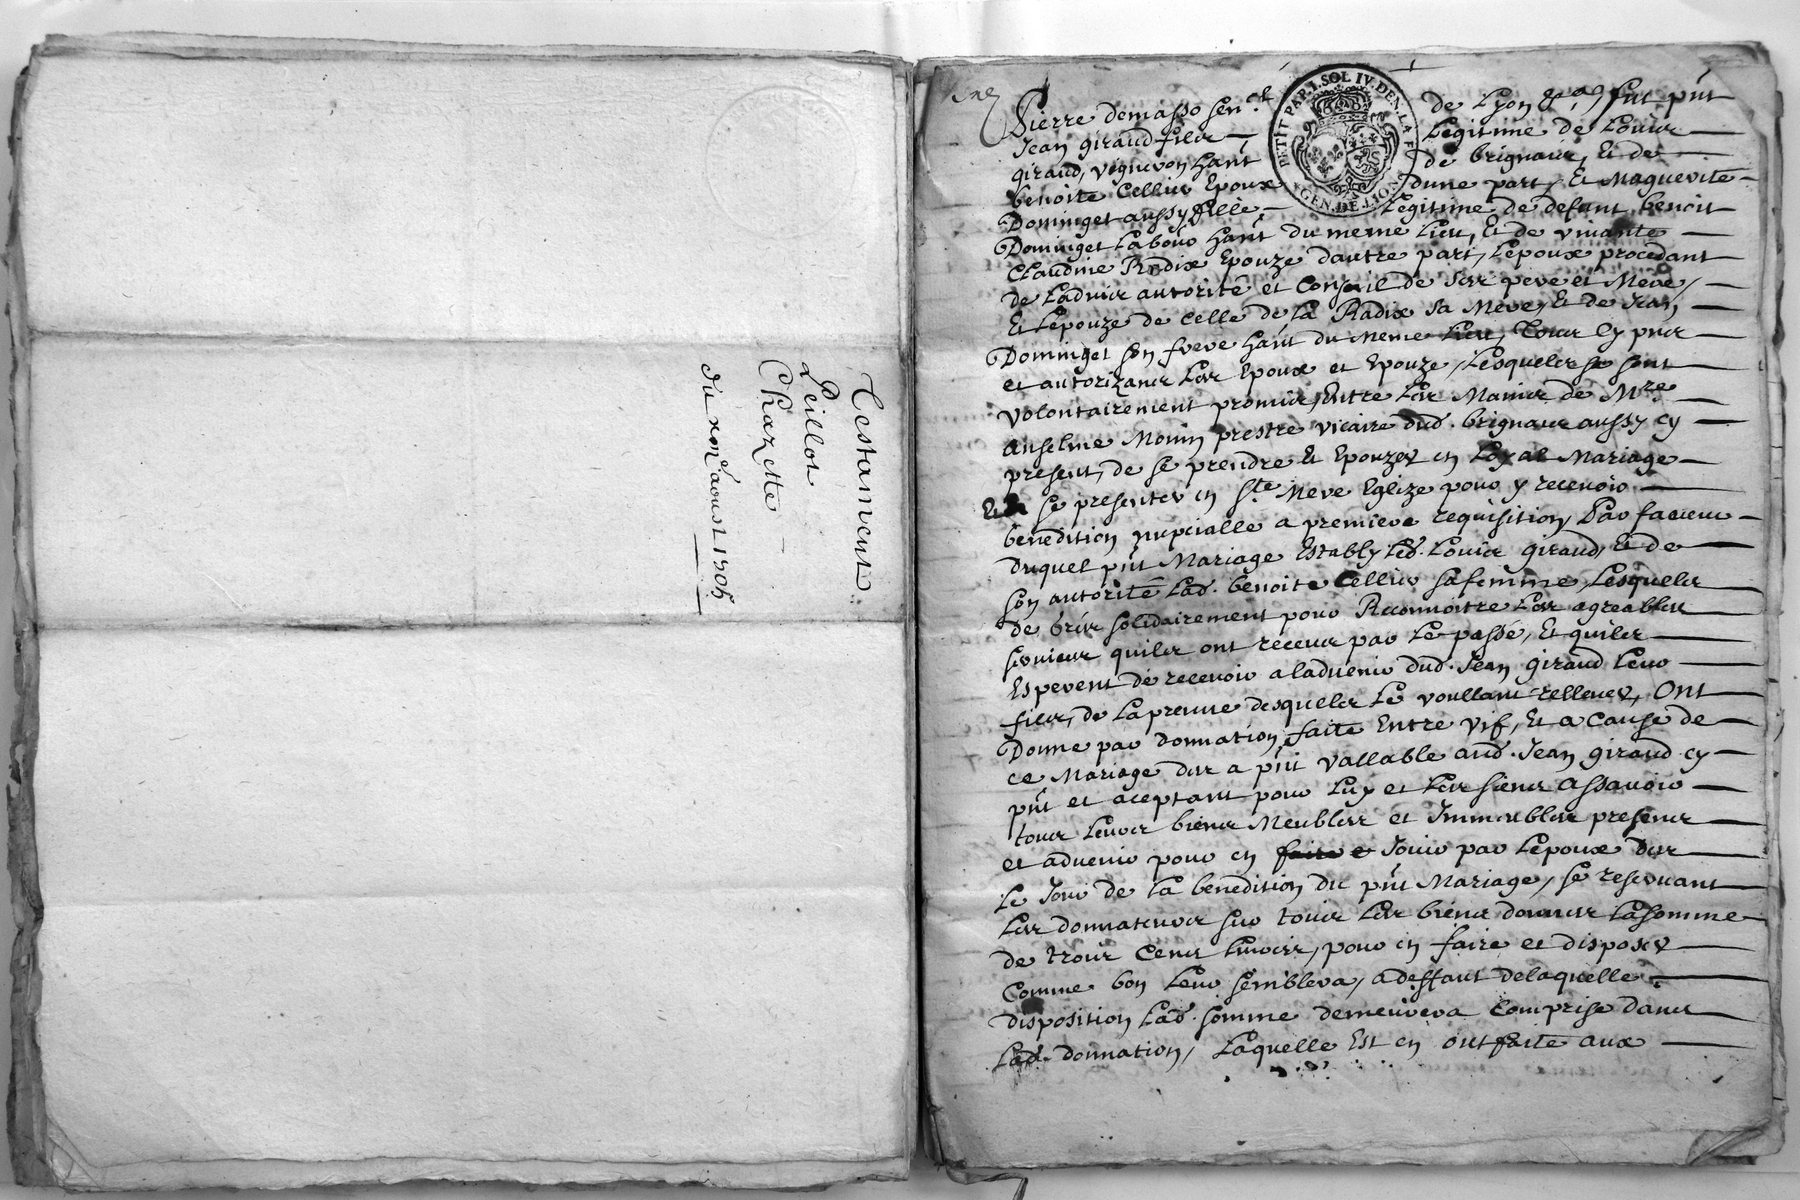 Testament
Peillot
Chazette
du xxme aoust 1705
PETIT PAP. 1. SOL IV. DEN. LA F.
GEN. DE LION
Pierre demasso sencal de Lyon fut pnt
Jean giraud filz Legitime de Louis
giraud, vigneron hant de brignais, Et de
benoite Cellier Epoux dune part, Et Maguerite
Dominget aussy fille Legitime de defunt benoit
Dominget Labour hant du meme lieu, Et de vivante
Claudine Radix Epouze dautre part, Lepoux procedant
de Ladvis autorité et Conseil de ses pere et Mere,
Et Lepouze de celle de la Radix sa Mere, Et de Jean
Dominget son frere hant du Meme lieu, Tous Cy pns
et autorizans Les Epoux et Epouze, Lesquels se sont
volontairement promis, Entre Les Mains de Mre
Anselme Monin prestre vicaire dud. brignais aussy cy
present, de se prendre Et Epouzer en Loyal Mariage
Et se presenter en Ste Mere Eglize pour y recevoir
benedition nupcialle a premiere requisition, Par faveur
duquel pnt Mariage Establys Led. Louis giraud, Et de
son autorité Lad. benoite Cellier sa femme, Lesquels
de gré solidairement pour Reconnoitre Les agreables
services quils ont receus par Le passé, Et quils
Esperent de recevoir a ladvenir dud. Jean giraud Leur
fils, de La preuve desquels Le voullant rellever, Ont
Donne par donnation faite Entre vif, Et a Cause de
ce Mariage des a pnt vallable aud. Jean giraud cy
pnt et aceptant pour Luy et Les siens Assavoir
tous Leurs biens Meubles et Immeubles presens
et advenir pour en faire et Jouir par Lepoux des
Le Jour de la benedition du pnt Mariage, se reservant
Les donnateurs sur tous Les biens donnes La somme
de trois Cens Livres, pour en faire et disposer
Comme bon Leur semblera, a deffaut de laquelle
disposition Lad. somme demeurera Comprise dans
Lad. donnation, Laquelle Est en out faite aux